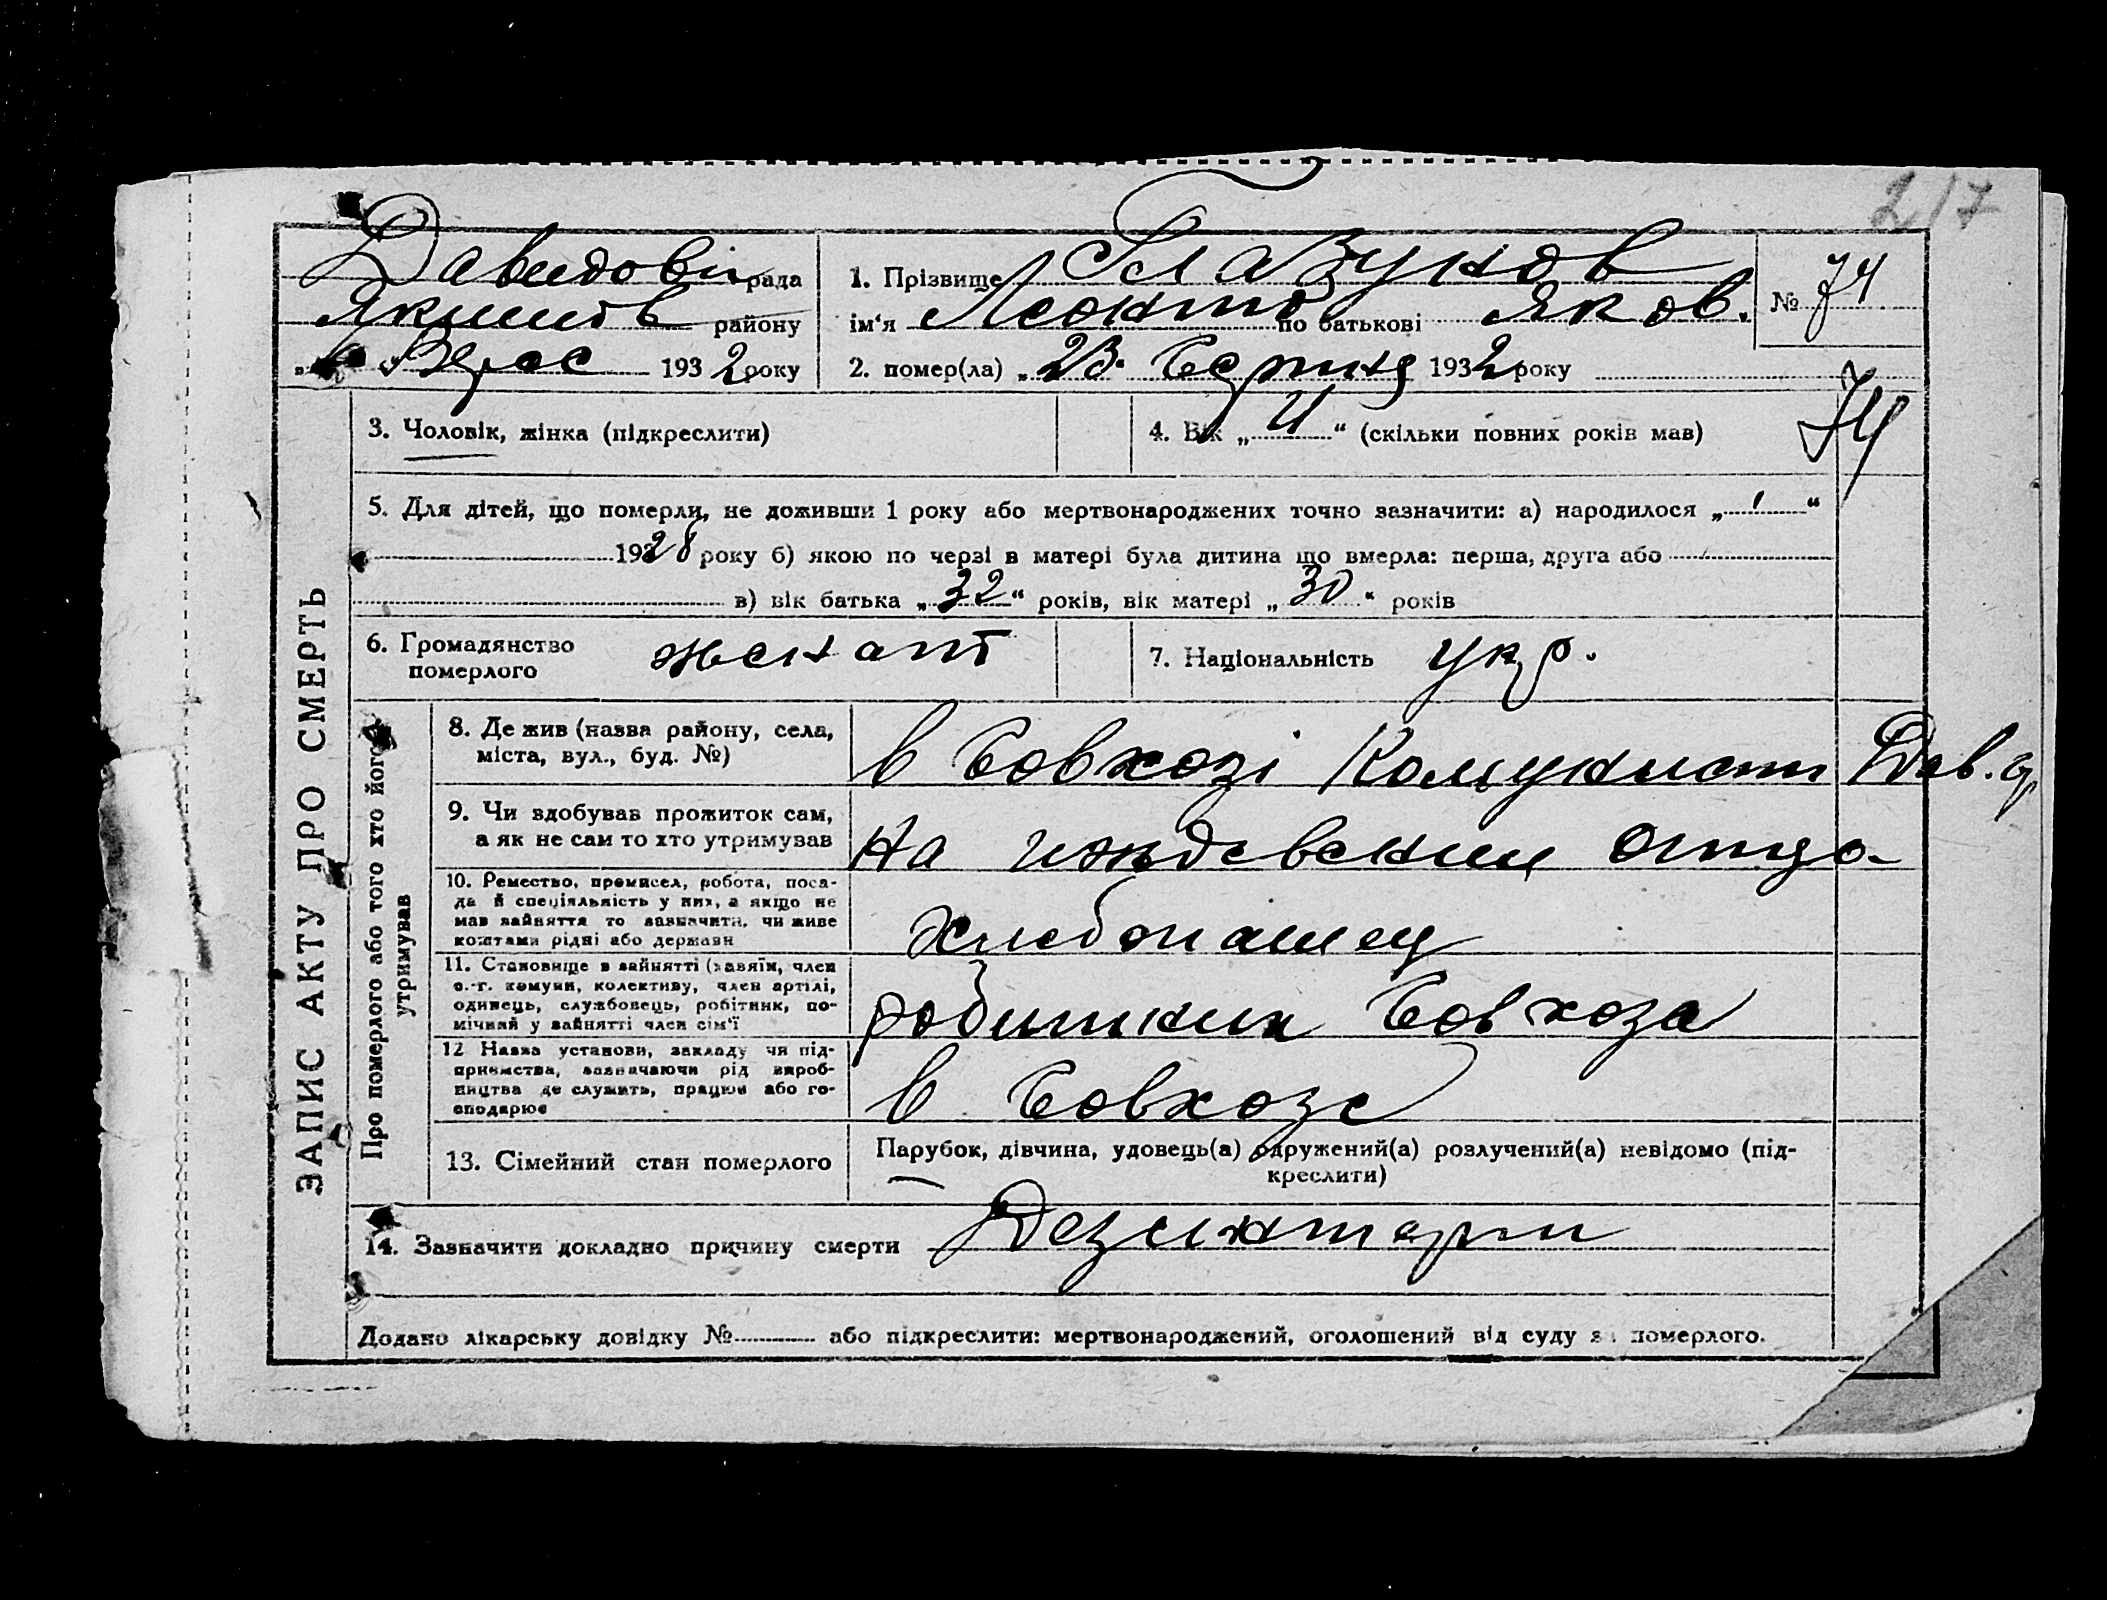 217
Давидовін рада
1. Прізвище Глазунов
№ 74
Якимов району
ім'я Леонто по батькові Яков.
Верес 1932 року
2. помер(ла) „23" Серпня 1932 року
74
3. Чоловік, жінка (підкреслити)
4. Вік „4" (скільки повних років мав)
5. Для дітей, що померли, не доживши 1 року або мертвонароджених точно зазначити: а) народилося „ "
1928 року б) якою по черзі в матері була дитина що вмерла: перша, друга або
в) вік батька „32" років, вік матері „30" років
6. Громадянство
померлого
7. Національність укр.
ЗАПИС АКТУ ПРО СМЕРТЬ
Про померлого або того хто його
утримував
8. Де жив (назва району, села,
міста, вул., буд. №)
в Совхозі Комунист Дав. ср
9. Чи здобував прожиток сам,
а як не сам то хто утримував
на иждевении отца
10. Ремество, промисел, робота, поса-
да й спеціяльність у них, а якщо не
мав зайняття то зазначити, чи живе
коштами рідні або держави
хлебопашец
11. Становище в зайнятті (хазяїн, член
с.-г. комуни, колективу, член артілі,
одинець, службовець, робітник, по-
мічний у зайнятті член сім'ї
робитник Совхоза
12 Назва установи, закладу чи під-
приємства, зазначаючи рід вироб-
ництва де служить, працює або го-
сподарює
в Совхозе
13. Сімейний стан померлого
Парубок, дівчина, удовець(а) одружений(а) розлучений(а) невідомо (під-
креслити)
14. Зазначити докладно причину смерти Дезинтери
Додано лікарську довідку № або підкреслити: мертвонароджений, оголошений від суду за померлого.